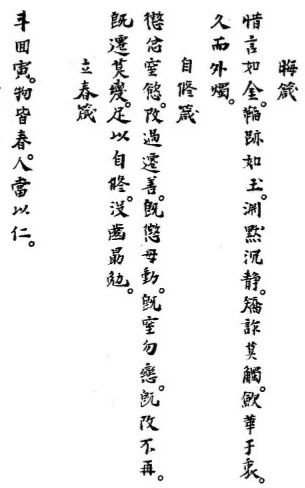 晦箴
惜言如金。韜跡如玉。淵默沉静。矯詐莫觸。歛華于衷。
久而外燭。
自修箴
懲忿窒慾。改過遷善。既懲毋動。既窒勿戀。既改不再。
既遷莫變。足以自修。没齒勗勉。
立春箴
斗回寅。物皆春。人當以仁。